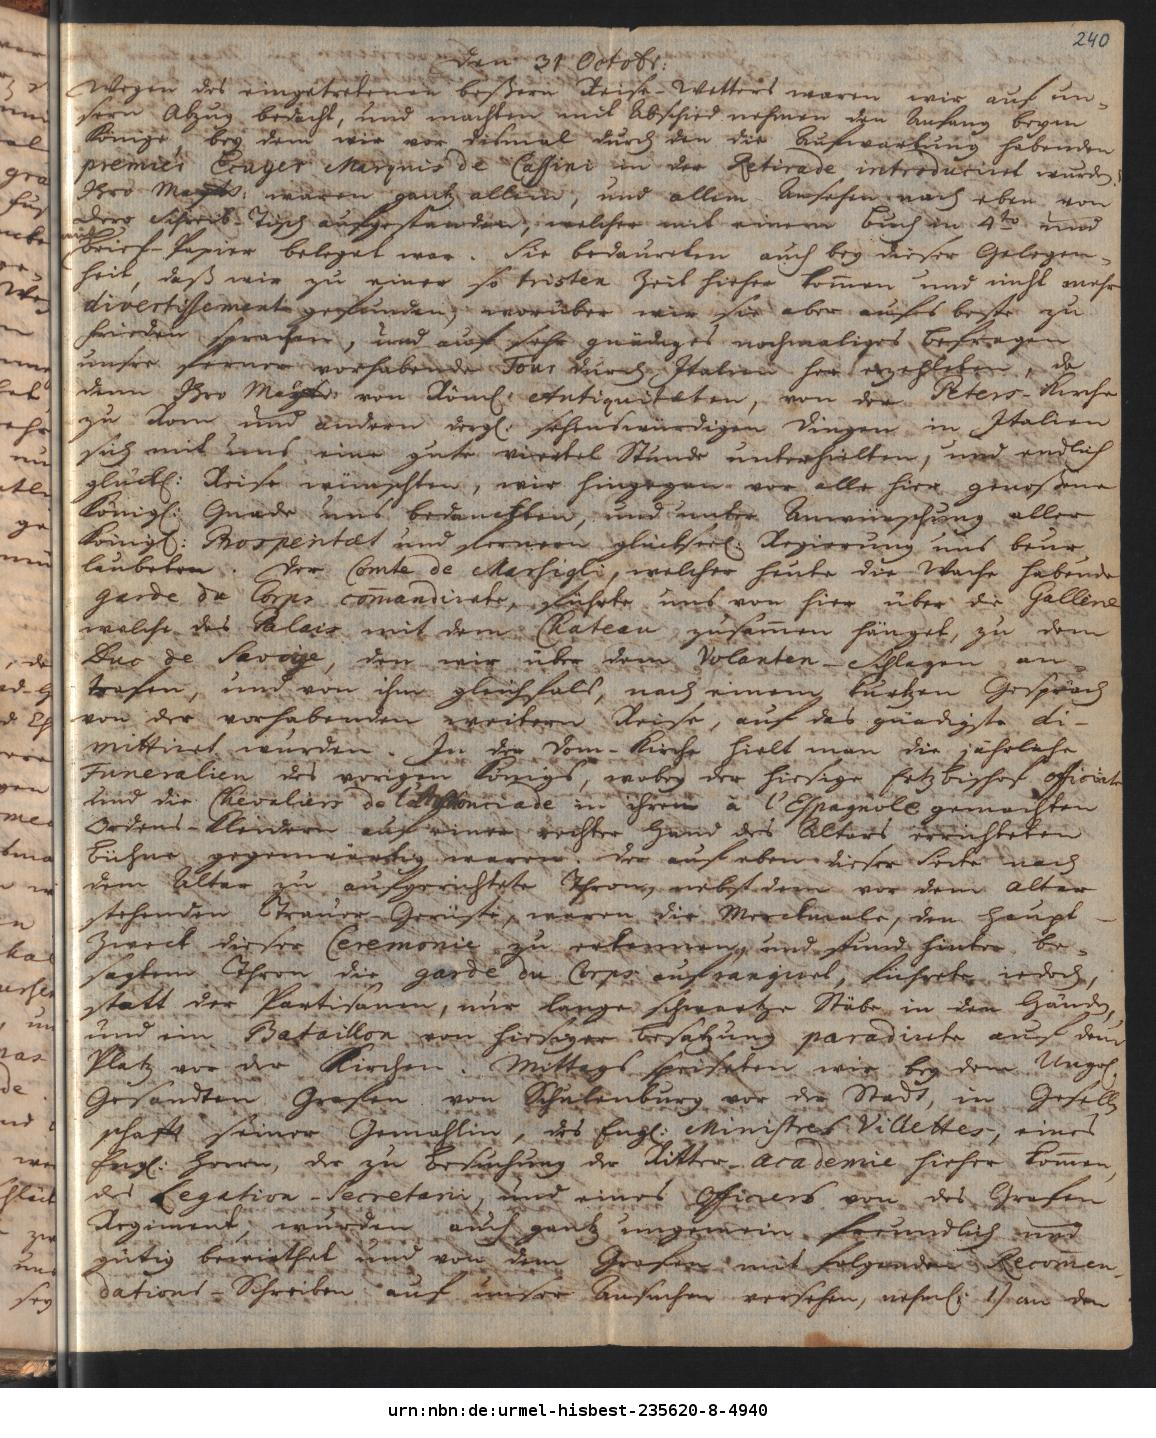 240
Den 31 Octobr:
Wegen des eingetretenen beßern Reise-Wetters waren wir auf un-
sern Abzug bedacht, und machten mit Abschied nehmen den Anfang beym
Könige, bey dem wir vor dismal durch den die Aufwartung habenden
premier Ecuyer Marquis de Cassini in der Retirade introduciret wurden.
Ihro Mayts: waren gantz allein, und allem Ansehen nach eben von
Dero Schreib-Tisch aufgestanden, welcher mit einem Buch in 4to und
Brief-Papier beleget war. Sie bedaureten auch bey dieser Gelegen-
heit, daß wir zu einer so tristen Zeit hieher kom̅en und nicht mehr
divertissement gefunden, worüber wir sie aber aufs beste zu
frieden sprachen, und auf sehr gnädiges nochmaliges Befragen
unsre ferner vorhabende Tour durch Italien her erzehleten, da
denn Ihro Mayts: von Röml: Antiquitæten, von der Peters-Kirche
zu Rom und andern dergl: sehenswürdigen Dingen in Italien
sich mit uns eine gute viertel Stunde unterhielten, und endlich
glückl: Reise wünschten, wir hingegen vor alle hier genoßene
Königl: Gnade uns bedanckten, und unter Anwünschung aller
Königl: Prosperitæt und fernern glückseel: Regierung uns beur-
laubeten. Der Comte de Marsigli, welcher heute die Wache habende
garde du Corps com̅andirete, führte uns von hier über die Gallerie
welche das Palais mit dem Chateau zusam̅en hänget, zu dem
Duc de Savoye, den wir über dem Volanten-Schlagen an-
trafen, und von ihm gleichfals, nach einem kurtzen Gespräch
von der vorhabenden weitern Reise, auf das gnädigste di-
mittiret wurden. In der Dom-Kirche hielt man die jährliche
Funeralien des vorigen Königs, wobey der hiesige Ertzbischof officirte
und die Chevaliers de l'Annonciade in ihren à l'Espagnole gemachten
Ordens-Kleidern auf einer rechter Hand des Altars errichteten
Bühne gegenwärtig waren. Der auf eben dieser Seite nach
dem Altar zu aufgerichtete Thron, nebst dem vor dem Altar
stehenden Trauer-Gerüste, waren die Merckmale, den Haupt-
Zweck dieser Ceremonie zu erkennen, und stund hinter be-
sagtem Thron die garde du Corps aufrangiret, führete iedoch,
statt der Partisanen, nur lange schwartze Stäbe in den Händen,
und ein Bataillon von hiesiger Besatzung paradirete auf dem
Platz vor der Kirchen. Mittags speiseten wir bey dem Ungl:
Gesandten Grafen von Schulenburg vor der Stadt, in Gesell-
schaft seiner Gemahlin, des Engl: Ministres Villettes, eines
Engl: Herrn, der zu Besuchung der Ritter-academie hieher kom̅en,
des Legation-Secretarii, und eines Officiers von des Grafen
Regiment, wurden auch gantz ungemein freundlich und
gütig bewirthet und von dem Grafen mit folgenden Recom̅en-
dations-Schreiben auf unser Ansuchen versehen, nehml: 1) an den
urn:nbn:de:urmel-hisbest-235620-8-4940